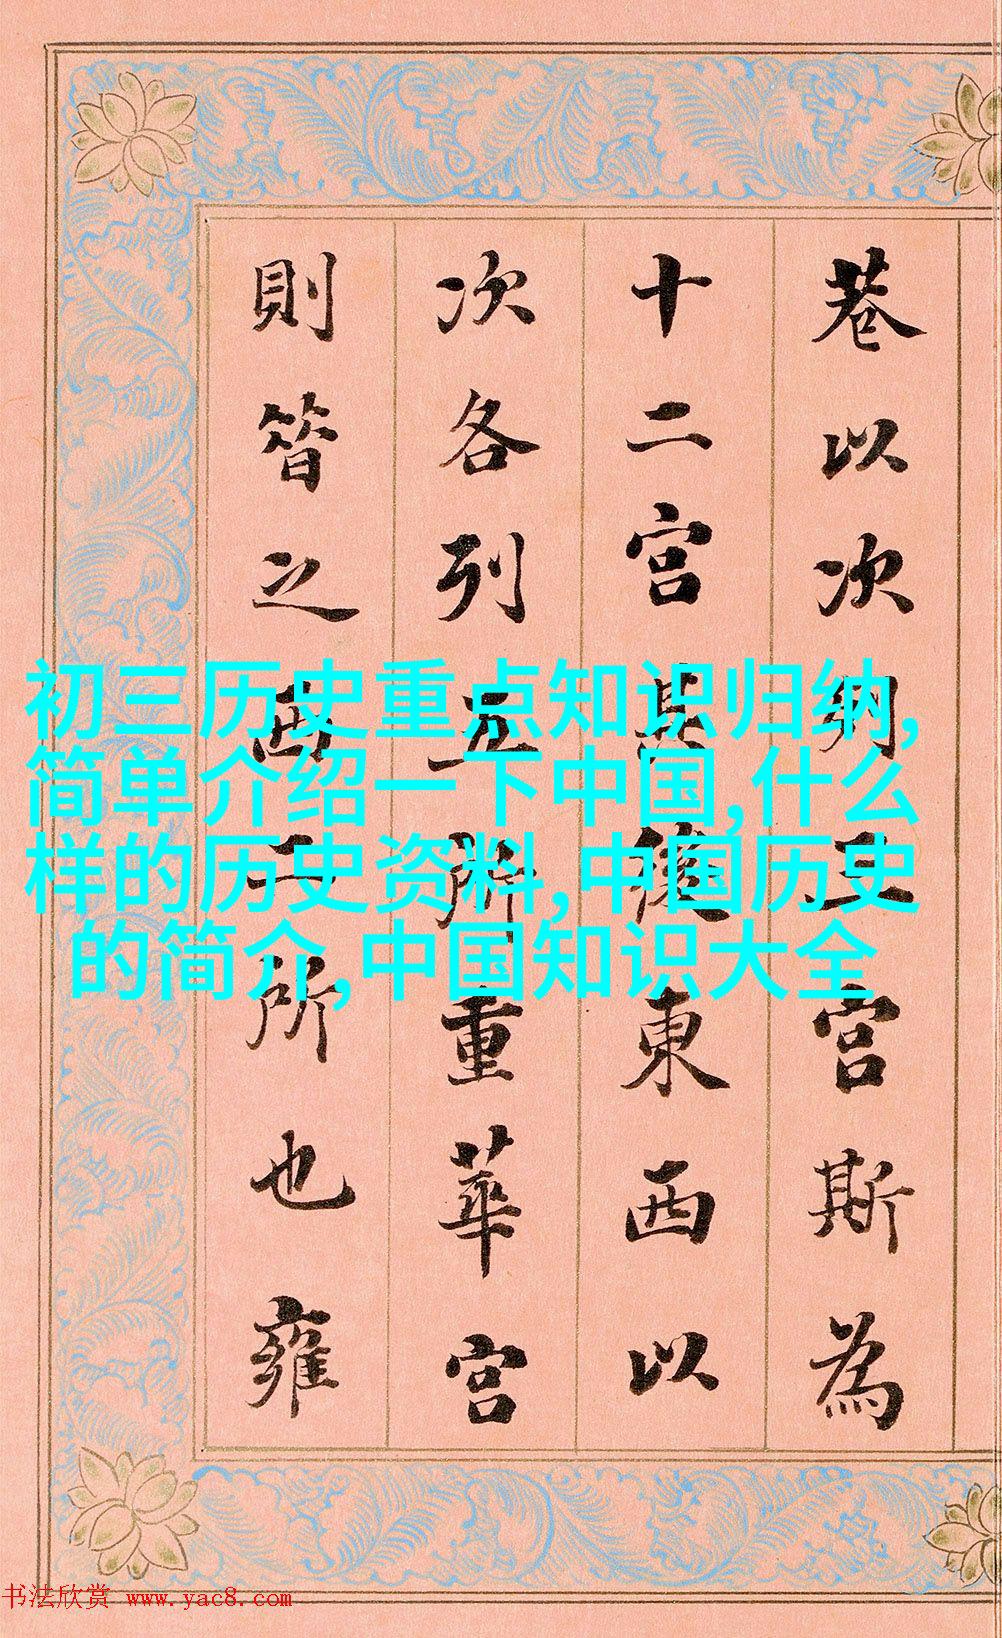 巷以次列三宫斯為
十二宫其後東西以
次各列五所重華宫
則昔之西二所也雍
初三历史重点知识归纳,
简单介绍一下中国,什么
样的历史资料,中国历史
的简介,中国知识大全
书法欣赏 www.yac8.com